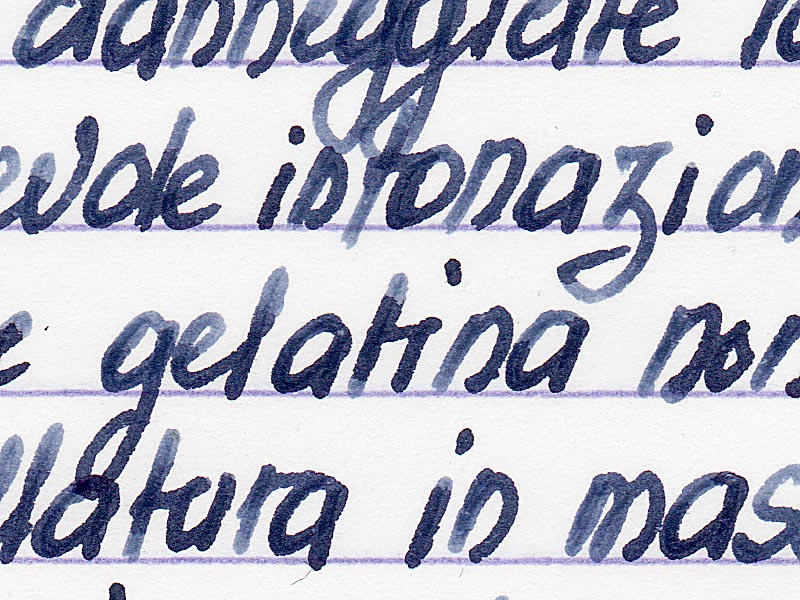 danneggiare
evole intonazion
e gelatina non
llatura in mas